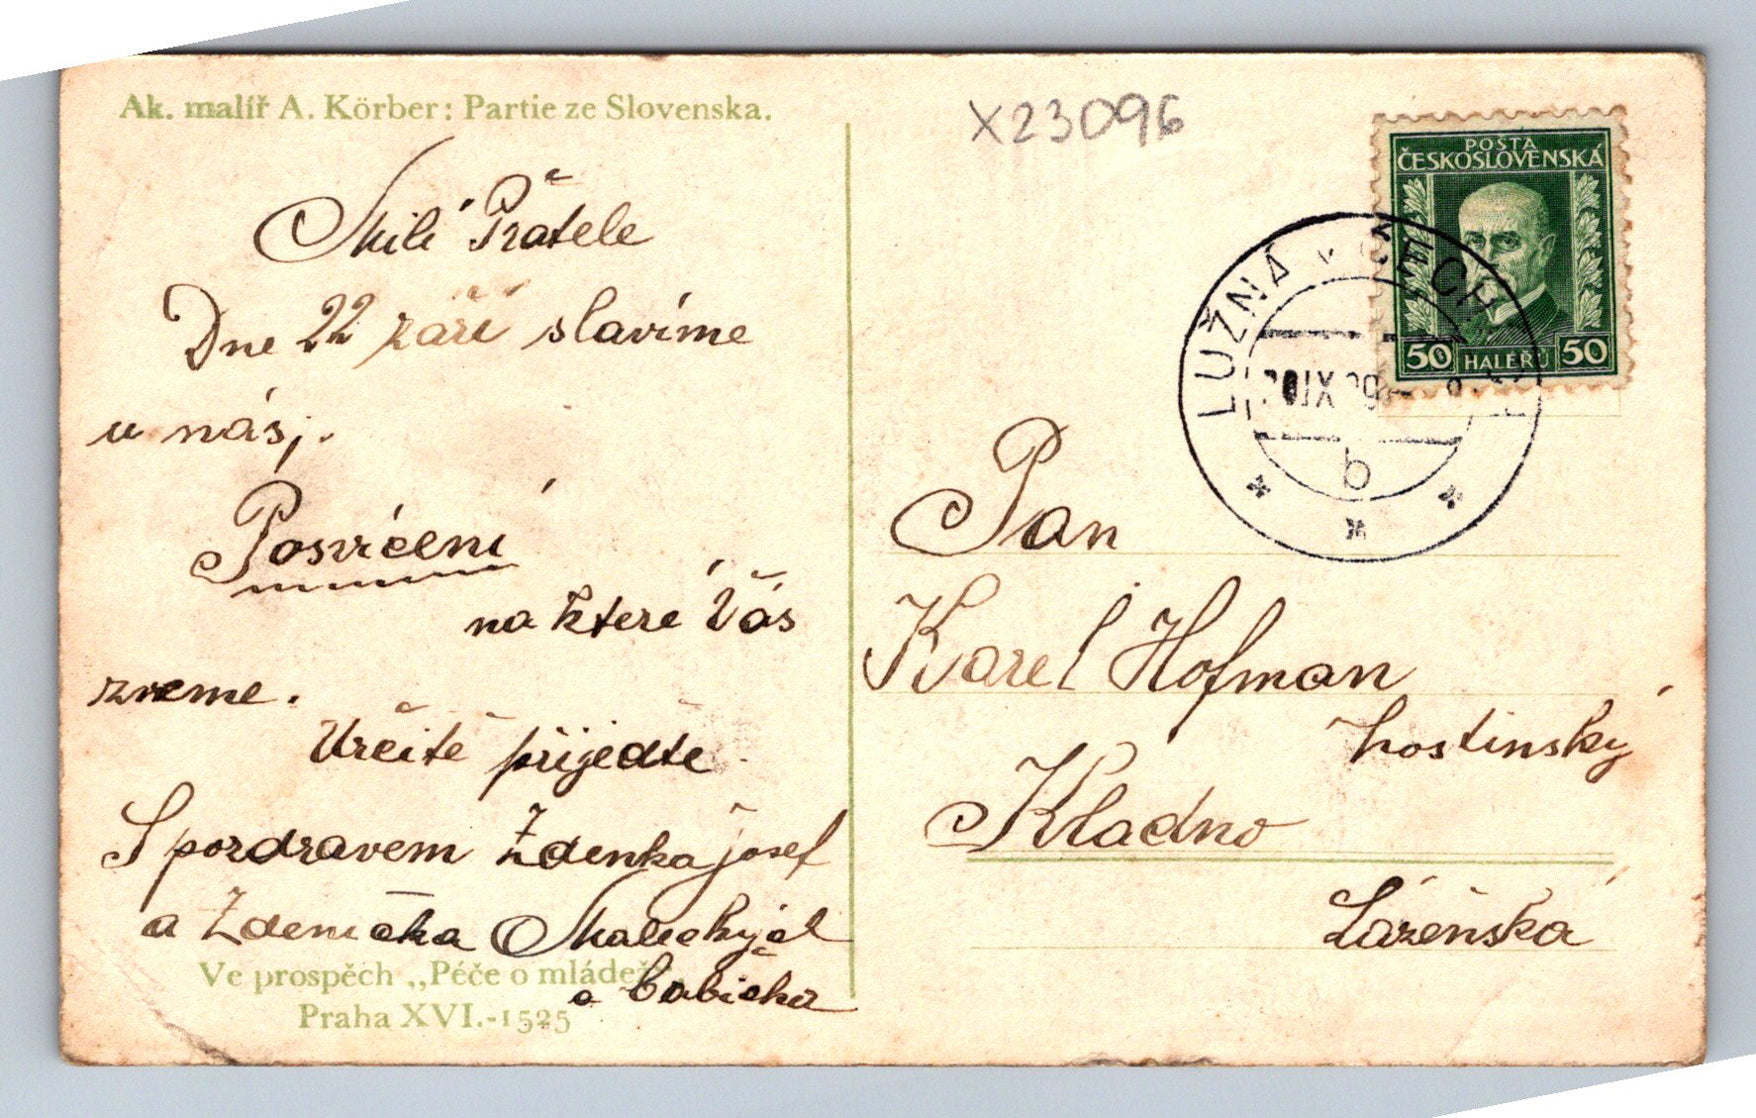 Ak. malíř A. Körber: Partie ze Slovenska.
X23096
POŠTA
ČESKOSLOVENSKÁ
50 HALÉŘŮ 50
LUŽNÁ v ČECH
IX
b
Milí Přátele
Dne 22 září slavíme
u nás;.
Posvícení
na které Vás
zveme.
Určitě přijeďte
S pozdravem Zdenka Josef
a Zdenička
a babička
Ve prospěch „Péče o mládež“,
Praha XVI.-1525
Pan
Karel Hofman
hostinský
Kladno
Lázeňská